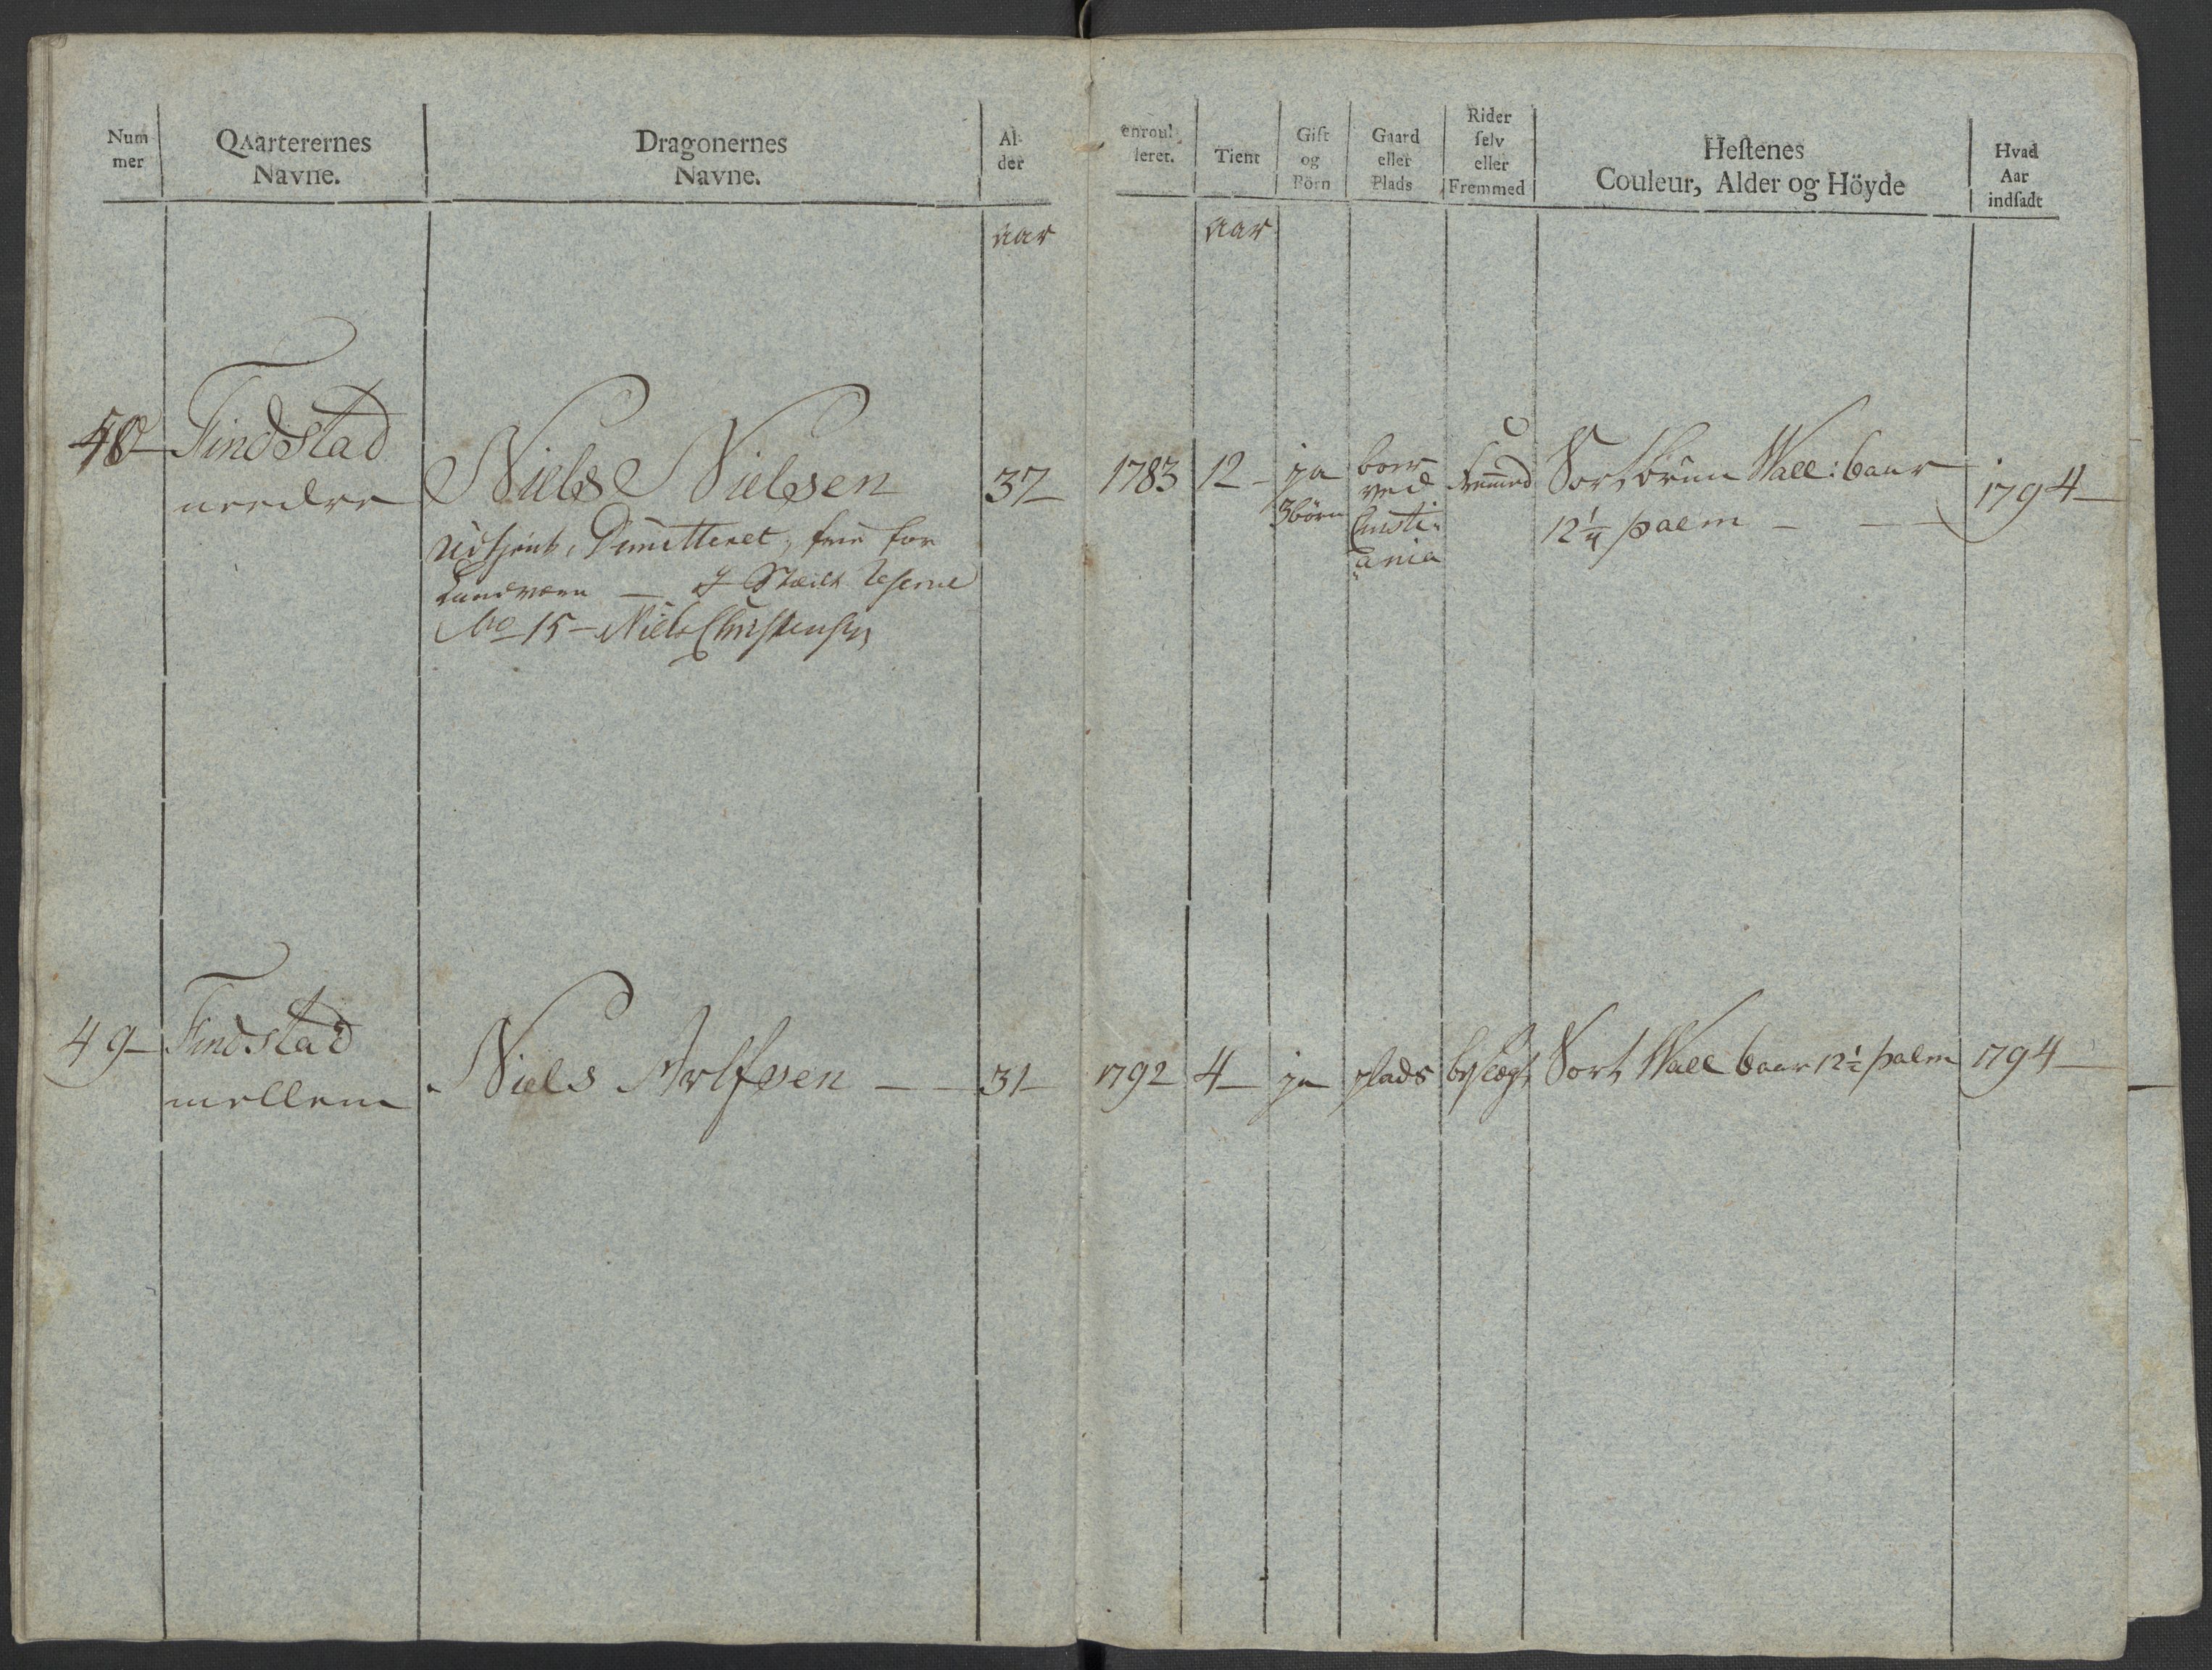 Num
mer
QAarterernes
Navne.
Dragonernes
Navne.
Al-
der
enroul
leret.
Tient
Gift
og
Börn
Gaard
eller
Plads
Rider
selv
eller
Fremmed
Hestenes
Couleur, Alder og Höyde
Hvad
Aar
indsadt
aar
aar
Findstad
needre
Niels Nielsen
37
Udtient, Dimitteret, frie for
Landværn
No 15 - Niels Christensen
1783
12
ja
3 börn
boer
ved
Christi-
ania
fremmed
Sortbruun Wall: 6 aar
12 1/4 palm
1794
49
Findstad
mellem
Niels Arlfsen
31
1792
4
ja
plads
besögt
Sort Wall 6 aar 12 1/2 palm
1794